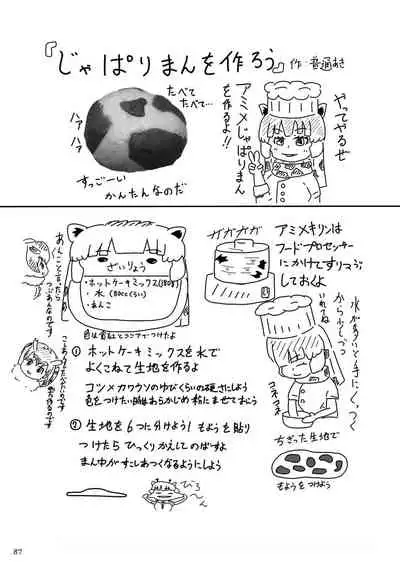 『じゃぱりまんを作ろう』
作・普通あき
たべて
たべて…
ハァ
ハァ
すっごーい
かんたんなのだ
やってやるぜ
アミメじゃぱりまん
を作るよ!!
ざいりょう
・ホットケーキミックス(180g)
・水(80ccくらい)
・あんこ
あんこと言ったら
つぶあんなのです
ガガガガ
アミメキリンは
フードプロセッサー
にかけてすりつぶ
しておくよ
① ホットケーキミックスを水で
よくこねて生地を作るよ
コツメカワウソのゆびくらいの硬さにしよう
色をつけたい時はあらかじめ粉にまぜておこう
水が多いと手にくっつく
から少しずつ
いれてね
コネコネ
② 生地を6つに分けよう!もようを貼り
つけたらひっくりかえしてのばすよ
まん中がすこしあつくなるようにしよう
ちぎった生地で
もようをつけよう
びろ〜ん
87